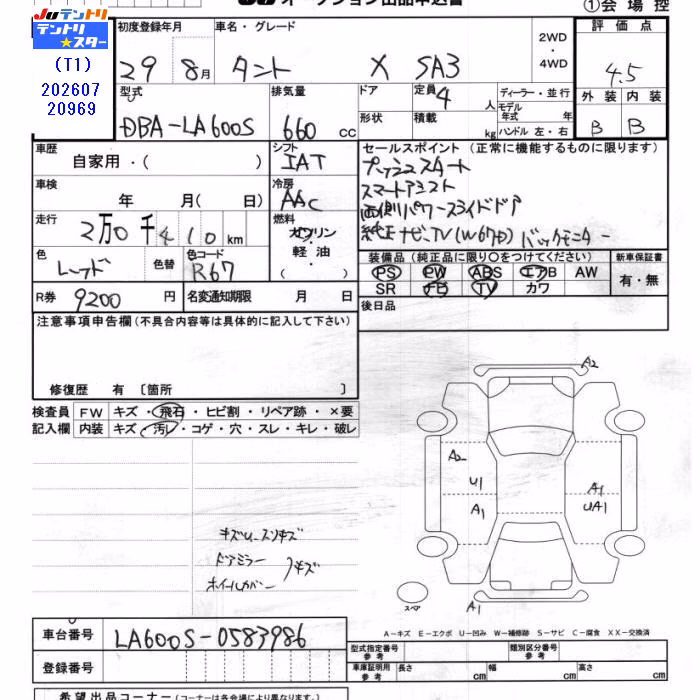 JUテントリ
テントリ
★スター
(T1)
202607
20969
①会場控
初度登録年月
29 8月
車名・グレード
タント X SA3
2WD
・
4WD
評価点
4.5
外装 内装
B B
型式
DBA-LA600S
排気量
660 cc
ドア
形状
定員 4 人
積載 kg
ディーラー・並行
モデル
年式 年
ハンドル 左・右
車歴
自家用・( )
シフト
IAT
車検
年 月( 日)
冷房
AAC
セールスポイント (正常に機能するものに限ります)
プッシュスタート
スマートアシスト
両側パワースライドドア
純正ナビ、TV(W67D) バックモニター
走行
2万0千410km
燃料
ガソリン
・
軽油
・
( )
色
レッド
色替
色コード
R67
装備品 (純正品に限り○をつけてください)
PS PW ABS エアB AW
SR ナビ TV カワ
新車保証書
有・無
R券 9200 円
名変通知期限 月 日
後日品
注意事項申告欄(不具合内容等は具体的に記入して下さい)
修復歴 有 〔箇所 〕
検査員
記入欄
FW キズ・飛石・ヒビ割・リペア跡・×要
内装 キズ・汚レ・コゲ・穴・スレ・キレ・破レ
A2
A2
U1
A1
A1
UA1
A1
スペア
キズU.スソキズ
ドアミラー
ホイールカバー
キズ
A-キズ E-エクボ U-凹み W-補修跡 S-サビ C-腐食 XX-交換済
車台番号 LA600S-0583986
登録番号
型式指定番号
参考
類別区分番号
参考
車庫証明用
参考
長さ cm 幅 cm 高さ cm
希望出品コーナー(コーナーは各会場により異なります。)